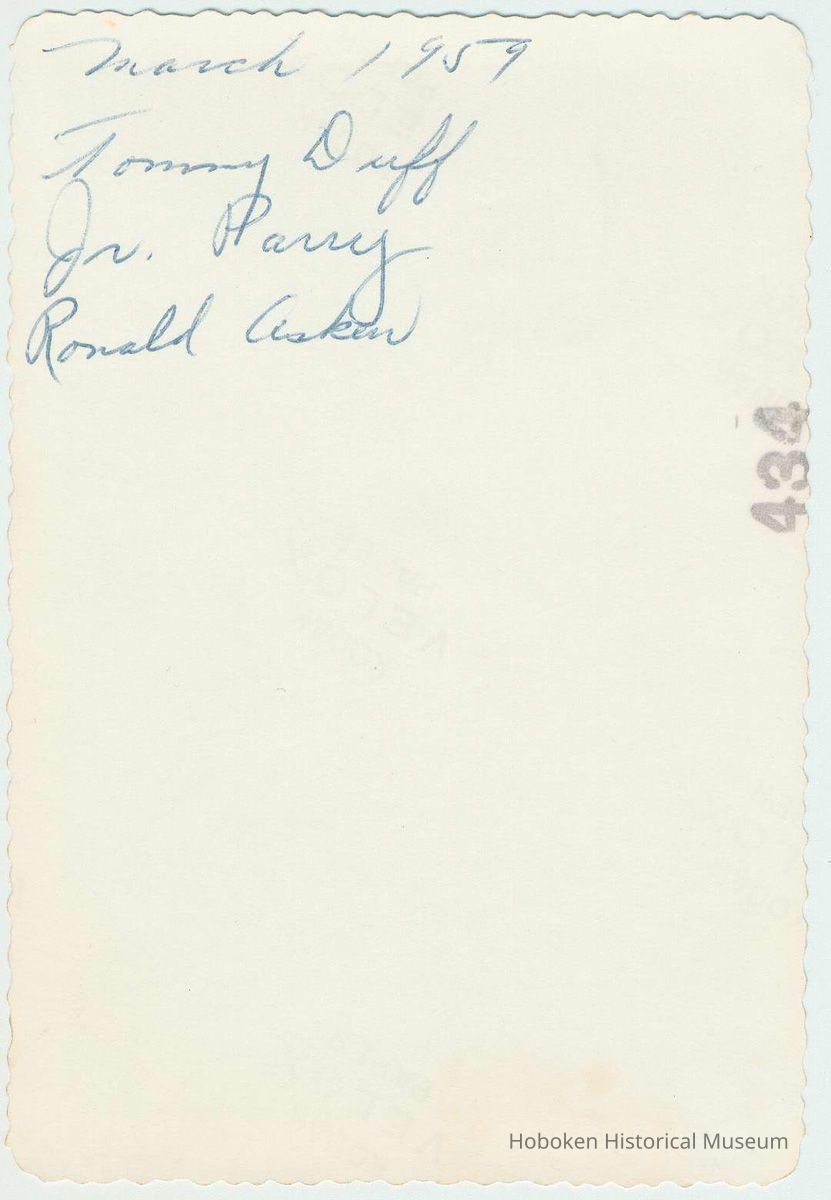 March 1959
Tommy Duff
Jr. Parry
Ronald Asken
434
Hoboken Historical Museum